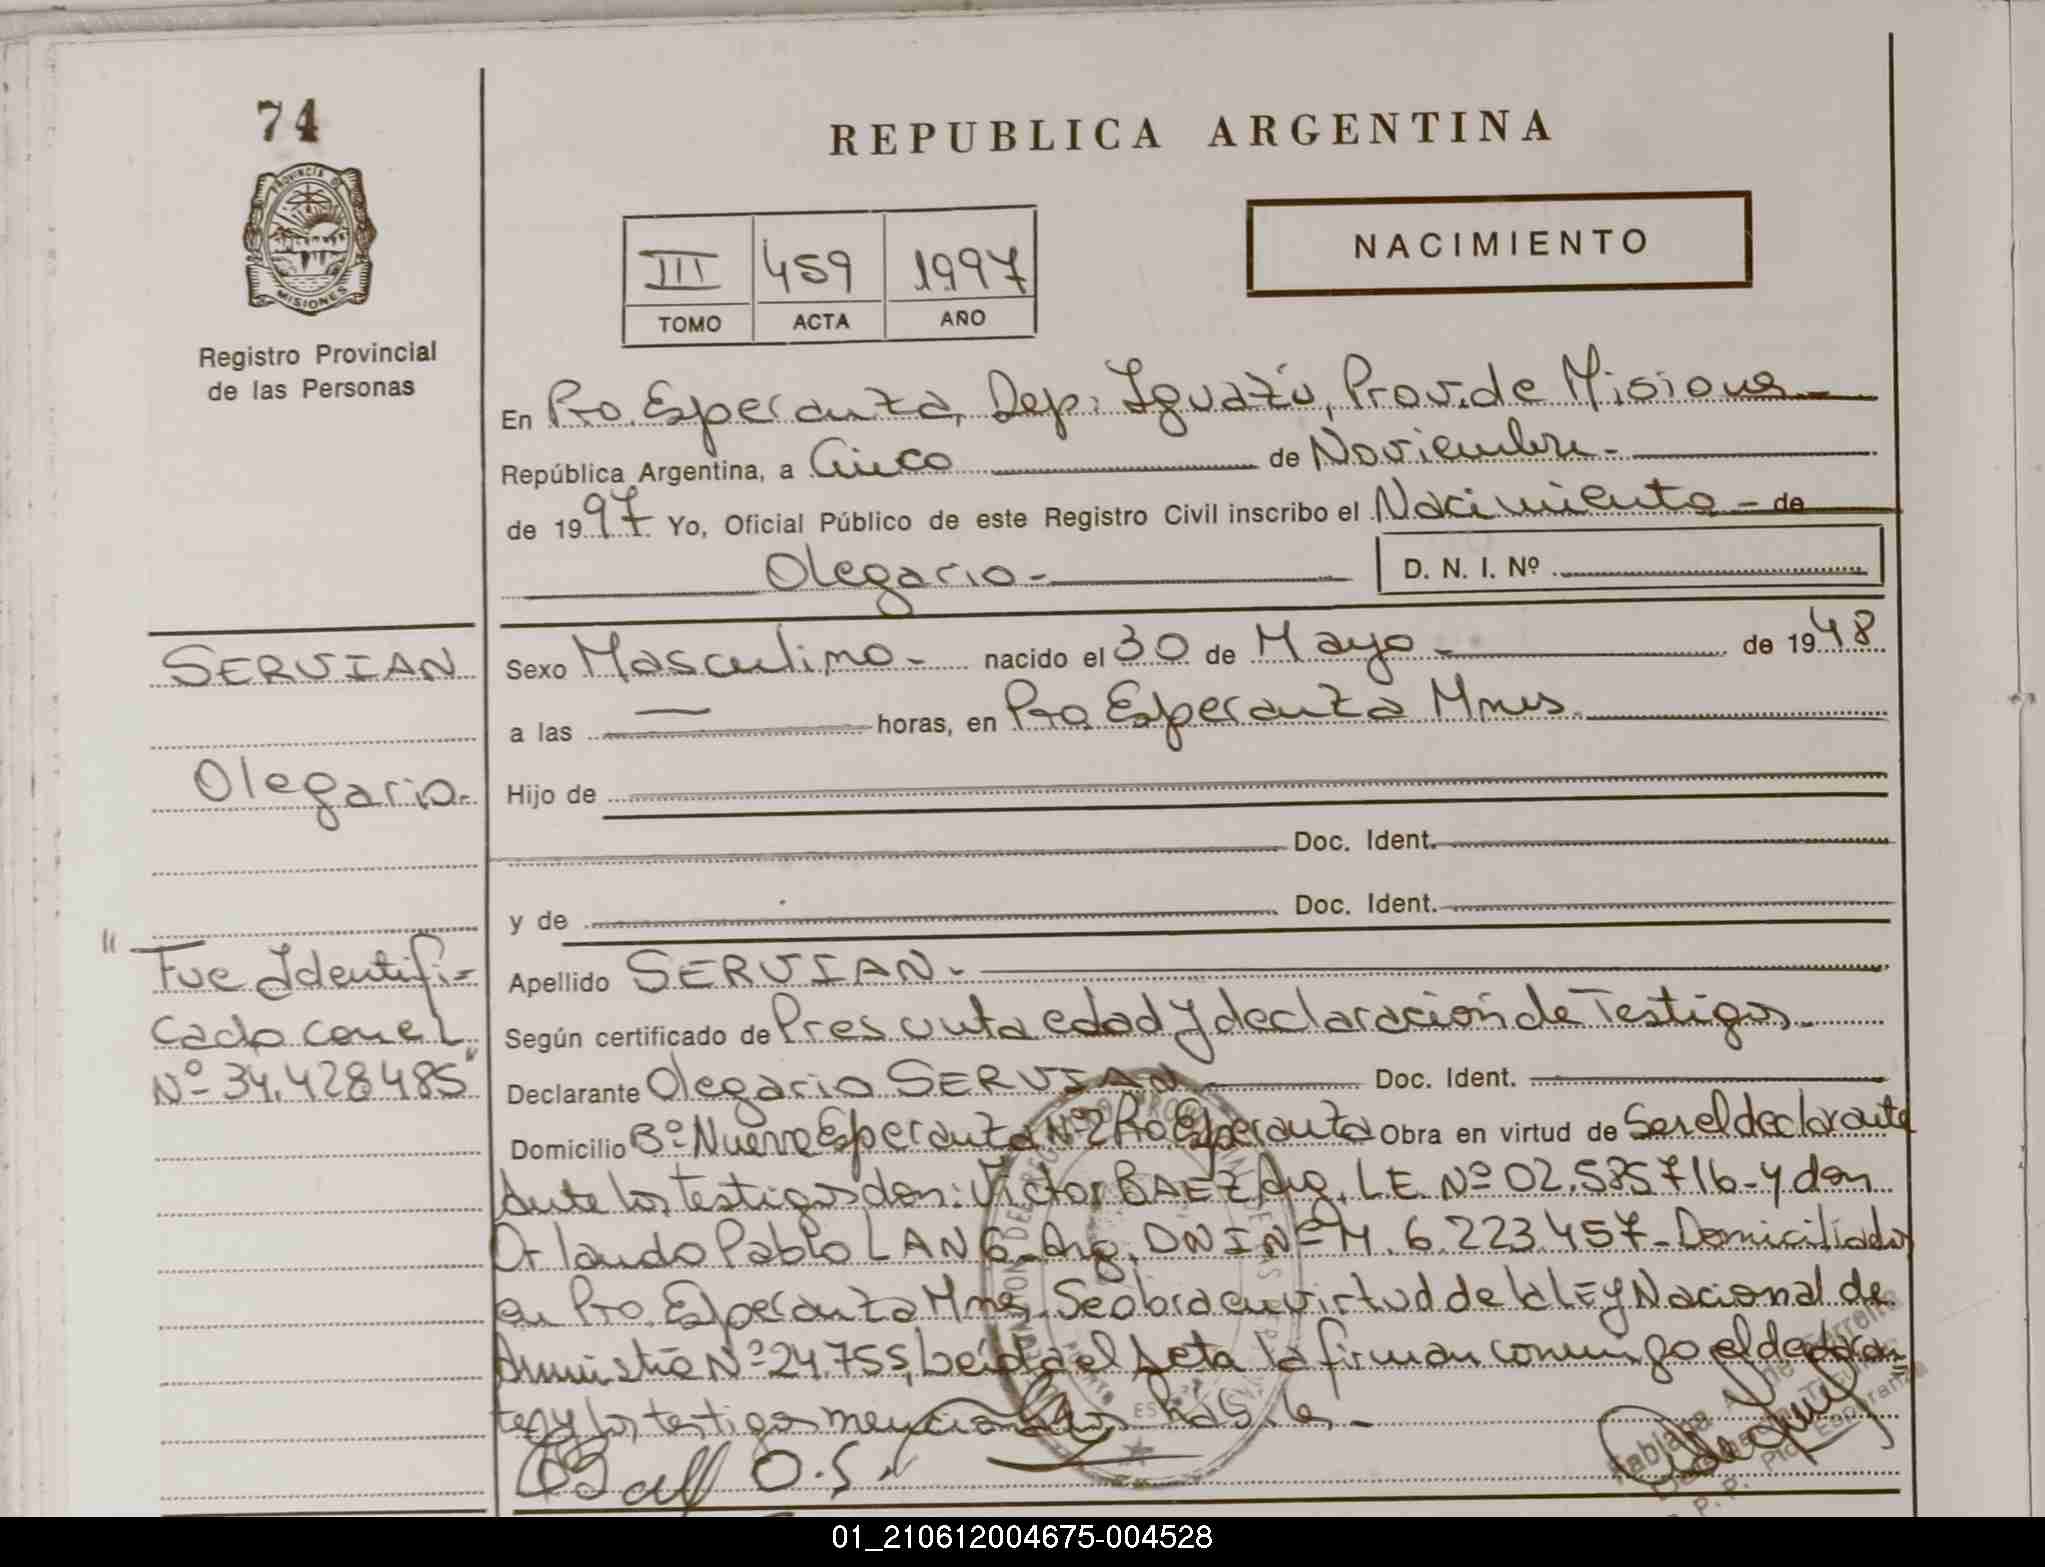 74
PROVINCIA DE
MISIONES
Registro Provincial
de las Personas
REPUBLICA ARGENTINA
III 459 1997
TOMO ACTA AÑO
NACIMIENTO
En Pto. Esperanza, Dep: Iguazú, Prov. de Misiones
República Argentina, a Cinco de Noviembre.
de 1997 Yo, Oficial Público de este Registro Civil inscribo el Nacimiento - de
Olegario - D. N. I. Nº
SERVIAN
Olegario.
"Fue Identifi=
cado con el
Nº 34.428485"
Sexo Masculino - nacido el 30 de Mayo - de 1948
a las — horas, en Pto Esperanza Mnes.
Hijo de
Doc. Ident.
y de Doc. Ident.
Apellido SERVIAN -
Según certificado de Presunta edad y declaración de Testigos.
Declarante Olegario SERVIAN Doc. Ident.
Domicilio Bº Nueva Esperanza Nº2 Pto Esperanza Obra en virtud de Ser el declarante
Ante los testigos don: Victor BAEZ, Arg. L.E. Nº 02.585716 - y don
Orlando Pablo LANG - Arg. DNI Nº M. 6.223.457 - Domiciliados
en Pto. Esperanza Mnes. Se obra en virtud de la LEy Nacional de
Amnistía Nº 24.755, Leída el Acta la firman conmigo el declaran=
te y los testigos mencionados
O.S.
01_210612004675-004528